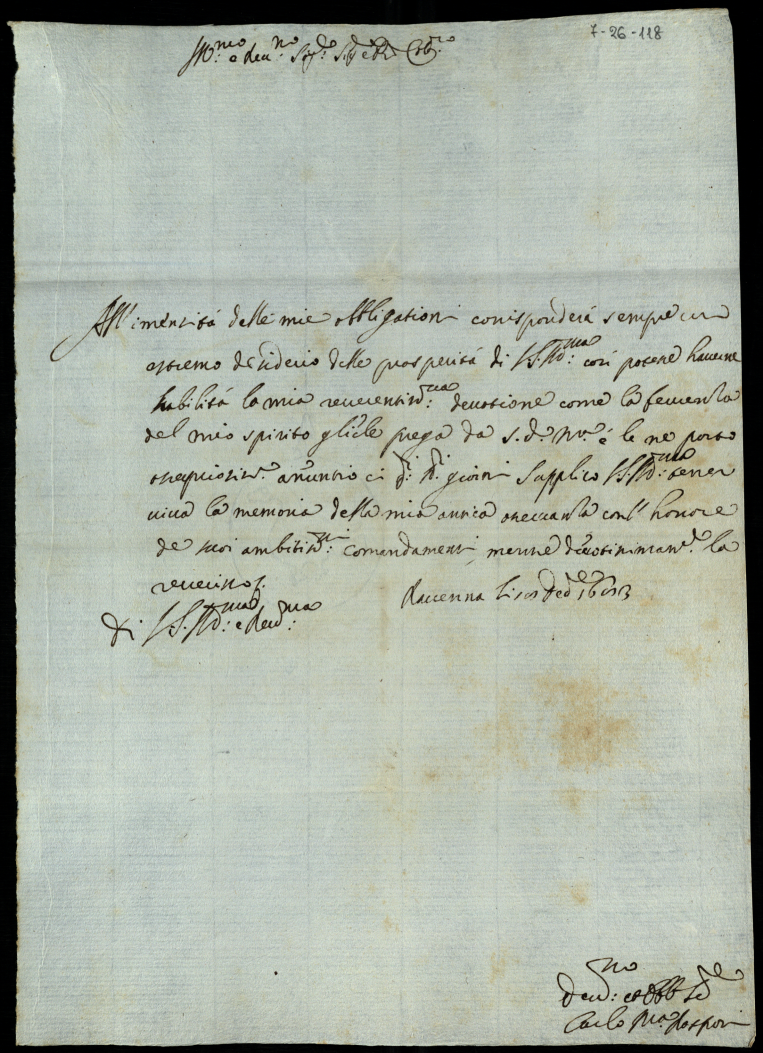 7-26-118
Ill.mo e Rev.mo Sig.re Sig.r e P.ron Col.mo
All'imensità delle mie obbligationi corrisponderà sempre un
estremo desiderio delle prosperità di V.S. Ill.ma: così potesse haverne
habilità la mia reverentiss.ma devotione come la fervenza
del mio spirito gliele prega da S. D. M. e le ne porto
ossequiosiss.o annuntio ci giorni supplico V.S. Ill.ma: tener
viva la memoria della mia antica osservanza con l'honore
de suoi ambitiss.mi: comandamenti, mentre devotissimam.te la
reverisco.
di V.S. Ill.ma: e Rev.ma: Ravenna li Xbre
Dev.mo: et Obb Se.re
Carlo M.a